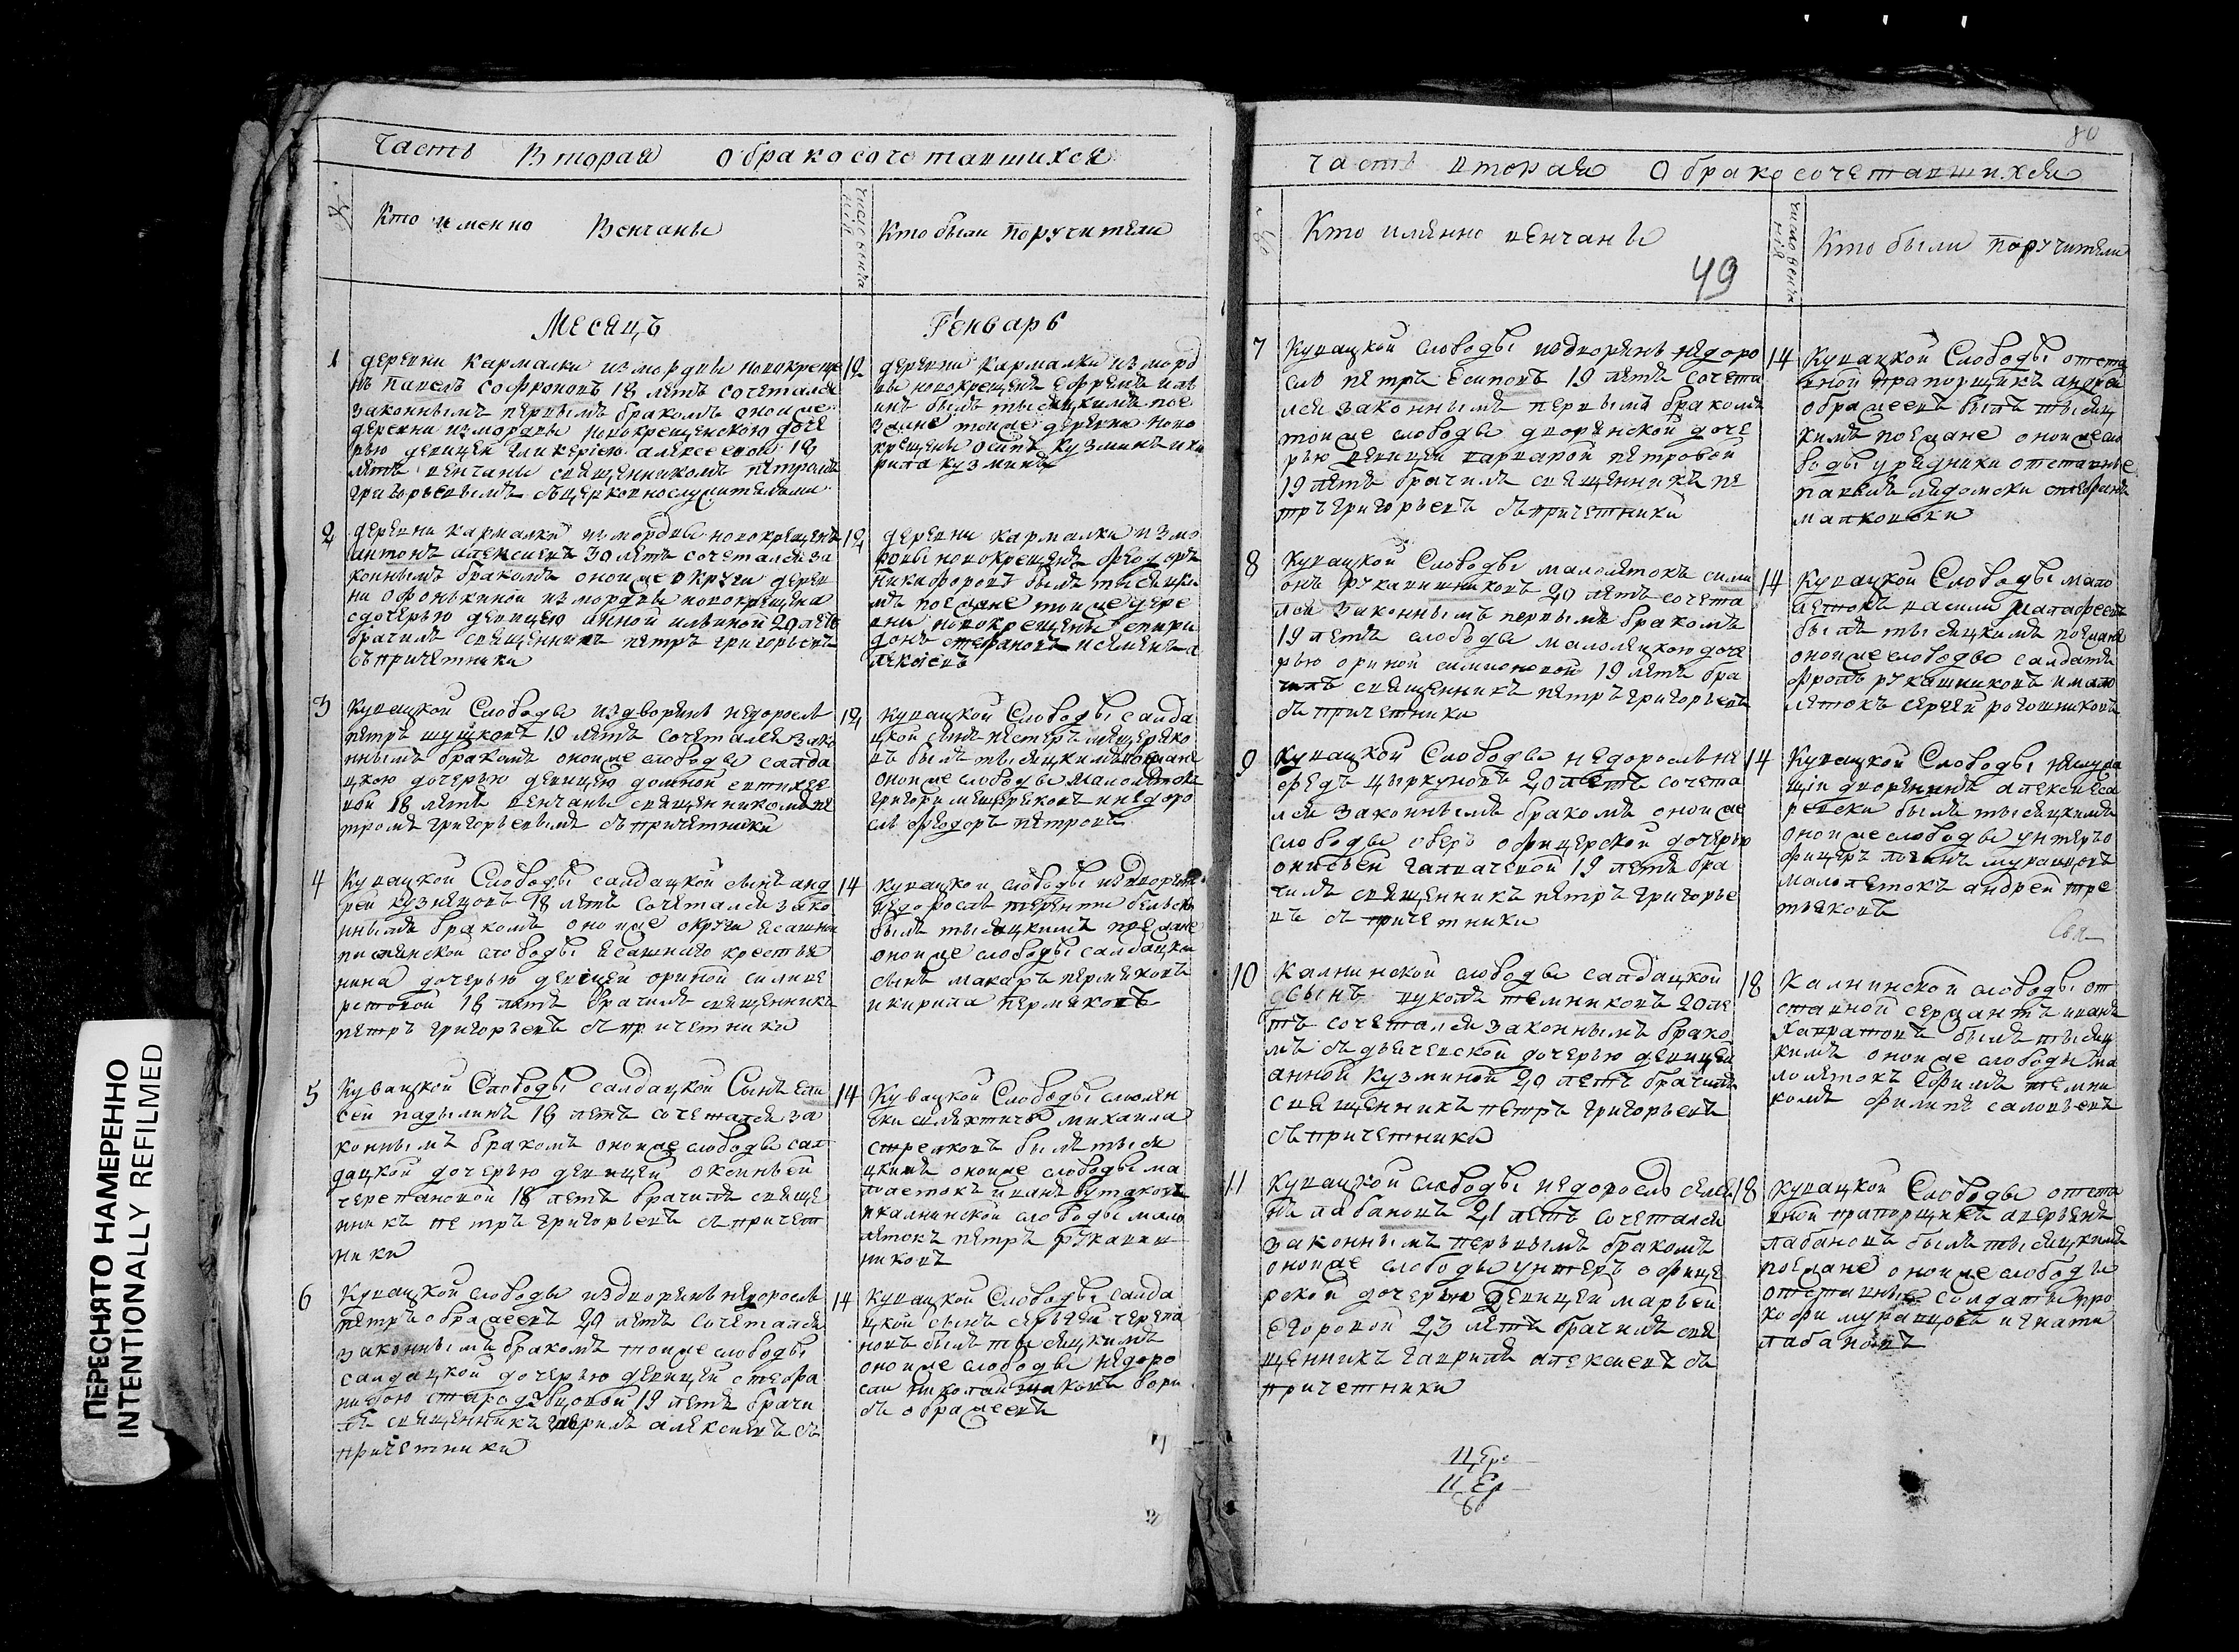 Часть Вторая О бракосочетавшихся
№
Кто именно Венчаны
Кто были поручители
Месяцъ Генварь
1
деревни Кармалки из мордвы новокреще
нъ Павелъ Софроновъ 18 летъ сочетался
законнымъ первымъ бракомъ оной же
деревни из мордвы новокрещенскою доче
рью девицей Гликерiею алексеевой 18
летъ венчаны священникомъ петромъ
григорьевымъ съ церковнослужителями
12
деревни Кармалки из морд
вы новокрещенъ Ефремъ
инъ былъ тысяцкимъ пое
зжане той же деревни ново
крещены осипъ Кузминъ и ки
рила кузминъ
2
деревни кармалки из мордвы новокрещенъ
антонъ алексиевъ 30 летъ сочетался за
коннымъ бракомъ оной же округи дерев
ни офонькиной из мордвы новокрещена
с дочерью девицею анной ильиной 20 летъ
брачилъ священникъ петръ григорьевъ
съ причетники
12
деревни кармалки из мо
рдвы новокрещенъ Феодоръ
Никифоровъ былъ тысяцки
мъ поезжане той же дере
вни новокрещены спири
донъ степановъ и семенъ а
лексiевъ
3
Кувацкой Слободы из дворянъ недоросль
петръ шушковъ 19 летъ сочетался зако
ннымъ бракомъ оной же слободы салда
цкою дочерью девицею домной евтихее
вой 18 летъ венчаны священникомъ пе
тромъ григорьевымъ съ причетники
12
Кувацкой Слободы салда
цкой сынъ пестеръ мещеряко
въ былъ тысяцкимъ поезжане
оной же слободы малолетокъ
григори мещеряковъ и недоро
сль феодоръ петровъ
4
Кувацкой Слободы салдацкой сынъ анд
рей кузнецовъ 18 летъ сочетался зако
ннымъ бракомъ оной же округи ясашной
слободы ясашнаго крестья
нина дочерью девицей ориной
18 летъ брачилъ священникъ
петръ григорьевъ съ причетники
14
Кувацкой слободы из дворянъ
недоросль терентий
былъ тысяцкимъ поезжане
оной же слободы салдацки
сынъ макаръ пермяковъ
и кирила пермяковъ
5
Кувацкой Слободы салдацкой Сынъ ели
сей падылинъ 18 летъ сочетался за
коннымъ бракомъ оной же слободы сал
дацкой дочерью девицей оксиньей
черепановой 18 летъ брачилъ свяще
нникъ петръ григорьевъ съ причет
ники
14
Кувацкой Слободы смолен
ски шляхтичъ михаила
стрелковъ былъ тыся
цкимъ оной же слободы ма
лолетокъ иванъ бутаковъ
и калнинской слободы мало
летокъ петръ рукавиш
никовъ
6
Кувацкой слободы из дворянъ недоросль
петръ ображеевъ 20 летъ сочетался
законнымъ бракомъ той же слободы
салдацкой дочерью девицей стефа
нидою стародубцовой 19 летъ брачи
лъ священникъ гаврилъ алексиевъ съ
причетники
14
Кувацкой Слободы салда
цкой сынъ сергей черепа
новъ былъ тысяцкимъ
оной же слободы недоро
сли николай и бори
съ ображеевъ
80
Часть вторая О бракосочетавшихся
№
Кто имянно венчаны
49
Кто были поручители
7
Кувацкой слободы из дворянъ недоро
сль петръ Есиповъ 19 летъ сочета
лся законнымъ первымъ бракомъ
той же слободы дворянской доче
рью девицей варварой петровой
19 летъ брачилъ священникъ пе
тръ григорьевъ съ причетники
14
Кувацкой Слободы отста
вной прапорщикъ андрей
ображеевъ былъ тысяц
кимъ поезжане оной же сло
боды урядники отставные
8
Кувацкой Слободы малолетокъ сими
онъ рукавишниковъ 20 летъ сочета
лся законнымъ первымъ бракомъ
19 летъ слободы малолецкою доче
рью ориной симионовой 19 летъ бра
чилъ священникъ петръ григорьевъ
съ причетники
14
Кувацкой Слободы мало
летокъ василий
былъ тысяцкимъ поезжане
оной же слободы салдатъ
фролъ рукавишниковъ и мало
летокъ сергей рогошниковъ
9
Кувацкой Слободы недоросль не
федъ цыркуновъ 20 летъ сочета
лся законнымъ бракомъ оной же
слободы оберъ офицерской дочерью
онисьей галкачевой 19 летъ бра
чилъ священникъ петръ григорье
въ съ причетники
14
Кувацкой Слободы неслужа
щiй дворянинъ алексей
былъ тысяцкимъ
оной же слободы унтеръ о
фицеръ муравцовъ
малолетокъ андрей тре
тьяковъ
Свя
10
Калнинской слободы салдацкой
сынъ вуколъ темниковъ 20 ле
тъ сочетался законнымъ брако
мъ съ дьячевской дочерью девицей
анной кузминой 20 летъ брачилъ
священникъ петръ григорьевъ
съ причетники
18
Калнинской слободы от
ставной сержантъ иванъ
былъ тысяц
кимъ оной же слободы ма
лолетокъ ефимъ темни
ковъ филипъ саловьевъ
11
Кувацкой слободы недоросль
лабановъ 21 летъ сочетался
законнымъ первымъ бракомъ
оной же слободы унтеръ офице
рской дочерью девицей марьей
егоровой 23 летъ брачилъ свя
щенникъ гаврилъ алексиевъ съ
причетники
18
Кувацкой Слободы отста
вной прапорщикъ аверьянъ
лабановъ былъ тысяцкимъ
поезжане оной же слободы
отставные солдаты про
кофи муравцовъ и игнати
лабановъ
ПЕРЕСНЯТО НАМЕРЕННО
INTENTIONALLY REFILMED